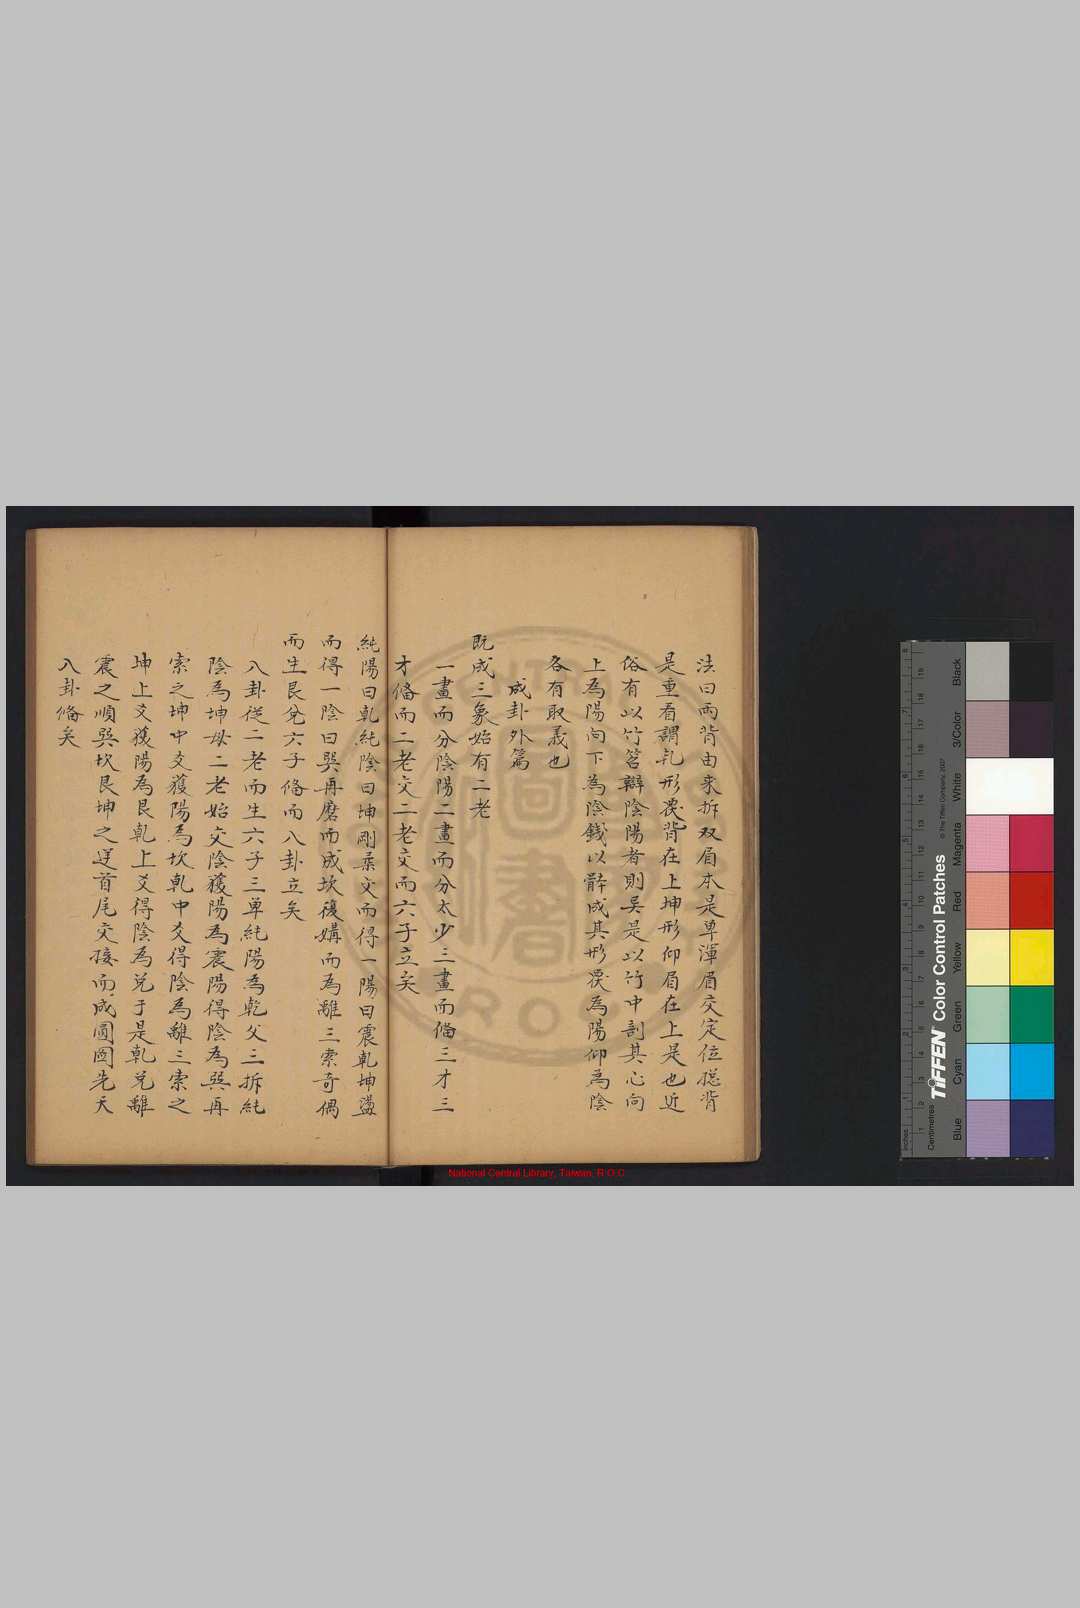 法曰兩背由來拆双眉本是單渾眉交定位總背
是重看謂乹形覆背在上坤形仰眉在上是也近
俗有以竹筶辯陰陽者則吴是以竹中剖其心向
上為陽向下為陰錢以辭成其形覆為陽仰為陰
各有取義也
成卦外篇
既成三象始有二老
一畫而分陰陽二畫而分太少三畫而俻三才三
才俻而二老交二老交而六子立矣
純陽曰乹純陰曰坤剛柔交而得一陽曰震乹坤盪
而得一陰曰巽再磨而成坎復媾而為離三索奇偶
而生艮兌六子俻而八卦立矣
八卦従二老而生六子三單純陽為乾父三拆純
陰為坤母二老始交陰獲陽為震陽得陰為巽再
索之坤中爻獲陽為坎乹中爻得陰為離三索之
坤上爻獲陽為艮乹上爻得陰為兌于是乹兌離
震之順巽坎艮坤之逆首尾交接而成圓圖先天
八卦俻矣
National Central Library, Taiwan, R.O.C
TIFFEN Color Control Patches
© The Tiffen Company, 2007
Inches
Centimetres
Blue
Cyan
Green
Yellow
Red
Magenta
White
3/Color
Black